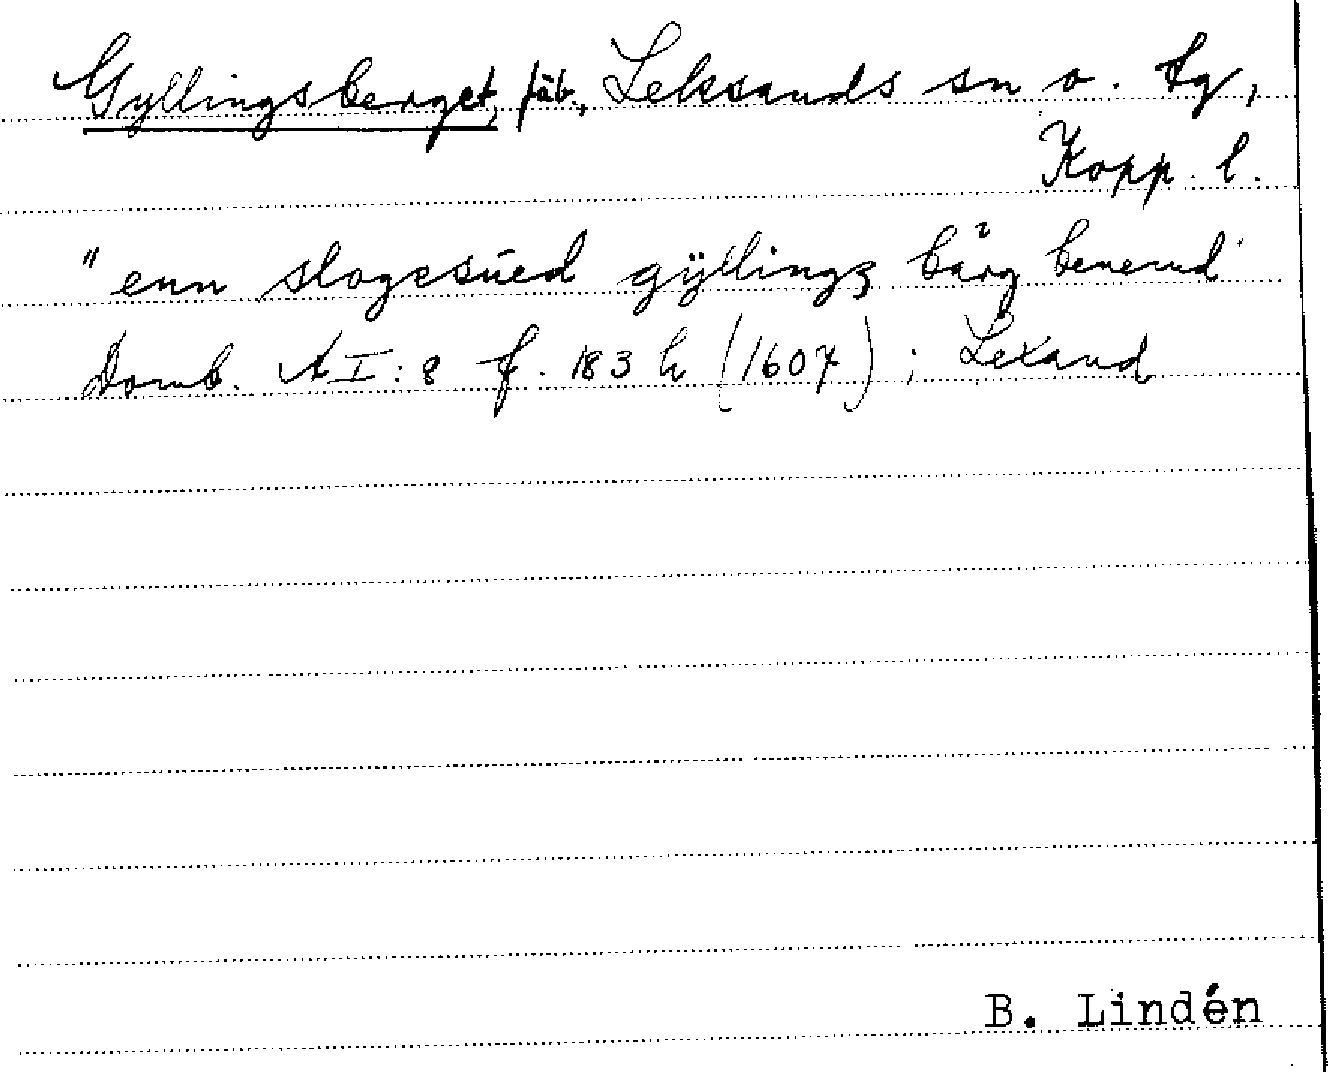 Gyllingsberget, fäb., Leksands sn o. tg,
Kopp. l.
"enn slogesűed gÿllingz bärg benemd
Domb. A I: 8 f. 183 h (1607); Lexand
B. Lindén